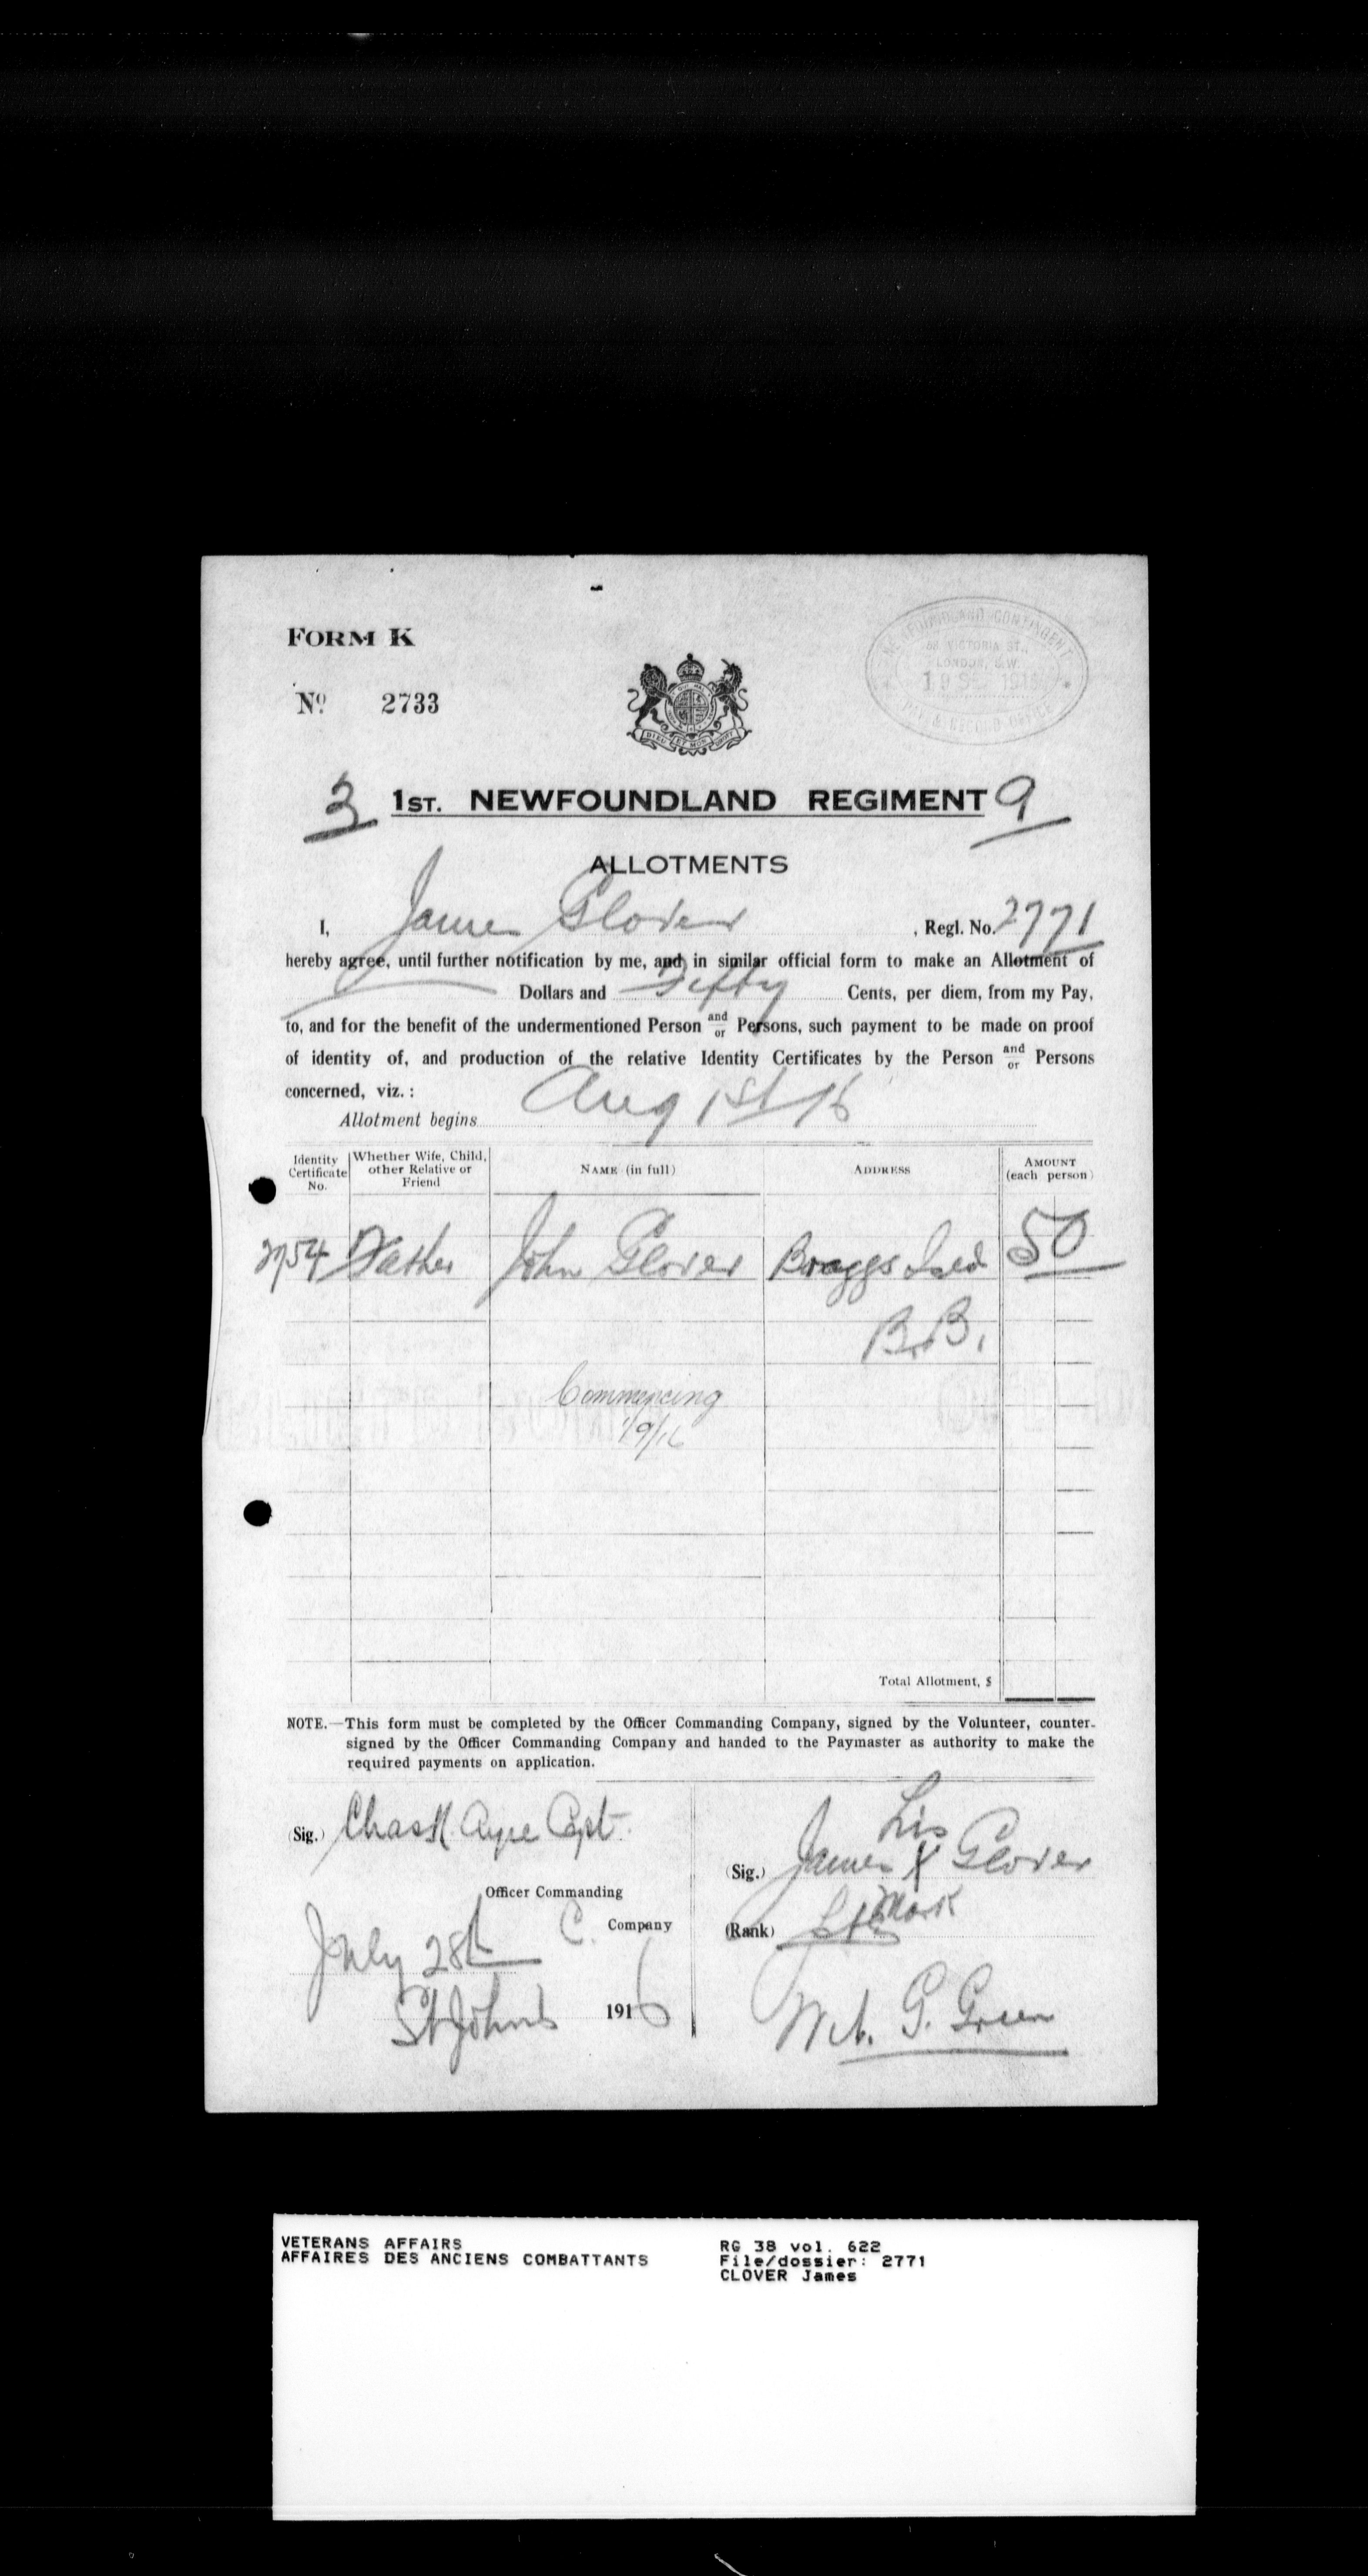 FORM K
NEWFOUNDLAND CONTINGENT
58 VICTORIA ST.,
LONDON, S.W.
PAY & RECORD OFFICE
No 2733
DIEU ET MON DROIT
3 1ST. NEWFOUNDLAND REGIMENT 9
ALLOTMENTS
I, James Glover , Regl. No. 2771
hereby agree, until further notification by me, and in similar official form to make an Allotment of
Dollars and Fifty Cents, per diem, from my Pay,
to, and for the benefit of the undermentioned Person and/or Persons, such payment to be made on proof
of identity of, and production of the relative Identity Certificates by the Person and/or Persons
concerned, viz. :
Allotment begins Aug 1st 16
Identity Certificate No. Whether Wife, Child, other Relative or Friend NAME (in full) ADDRESS AMOUNT (each person)
2754 Father John Glover Braggs Isld 50
B.B.
Commencing
1/9/16
Total Allotment, $
NOTE.—This form must be completed by the Officer Commanding Company, signed by the Volunteer, counter-
signed by the Officer Commanding Company and handed to the Paymaster as authority to make the
required payments on application.
(Sig.) Chas H. Ayre Capt.
Officer Commanding
C. Company
July 28th
St Johns 1916
his
(Sig.) James X Glover
Mark
(Rank)
Wit. G. Green
VETERANS AFFAIRS
AFFAIRES DES ANCIENS COMBATTANTS
RG 38 vol. 622
File/dossier: 2771
CLOVER James